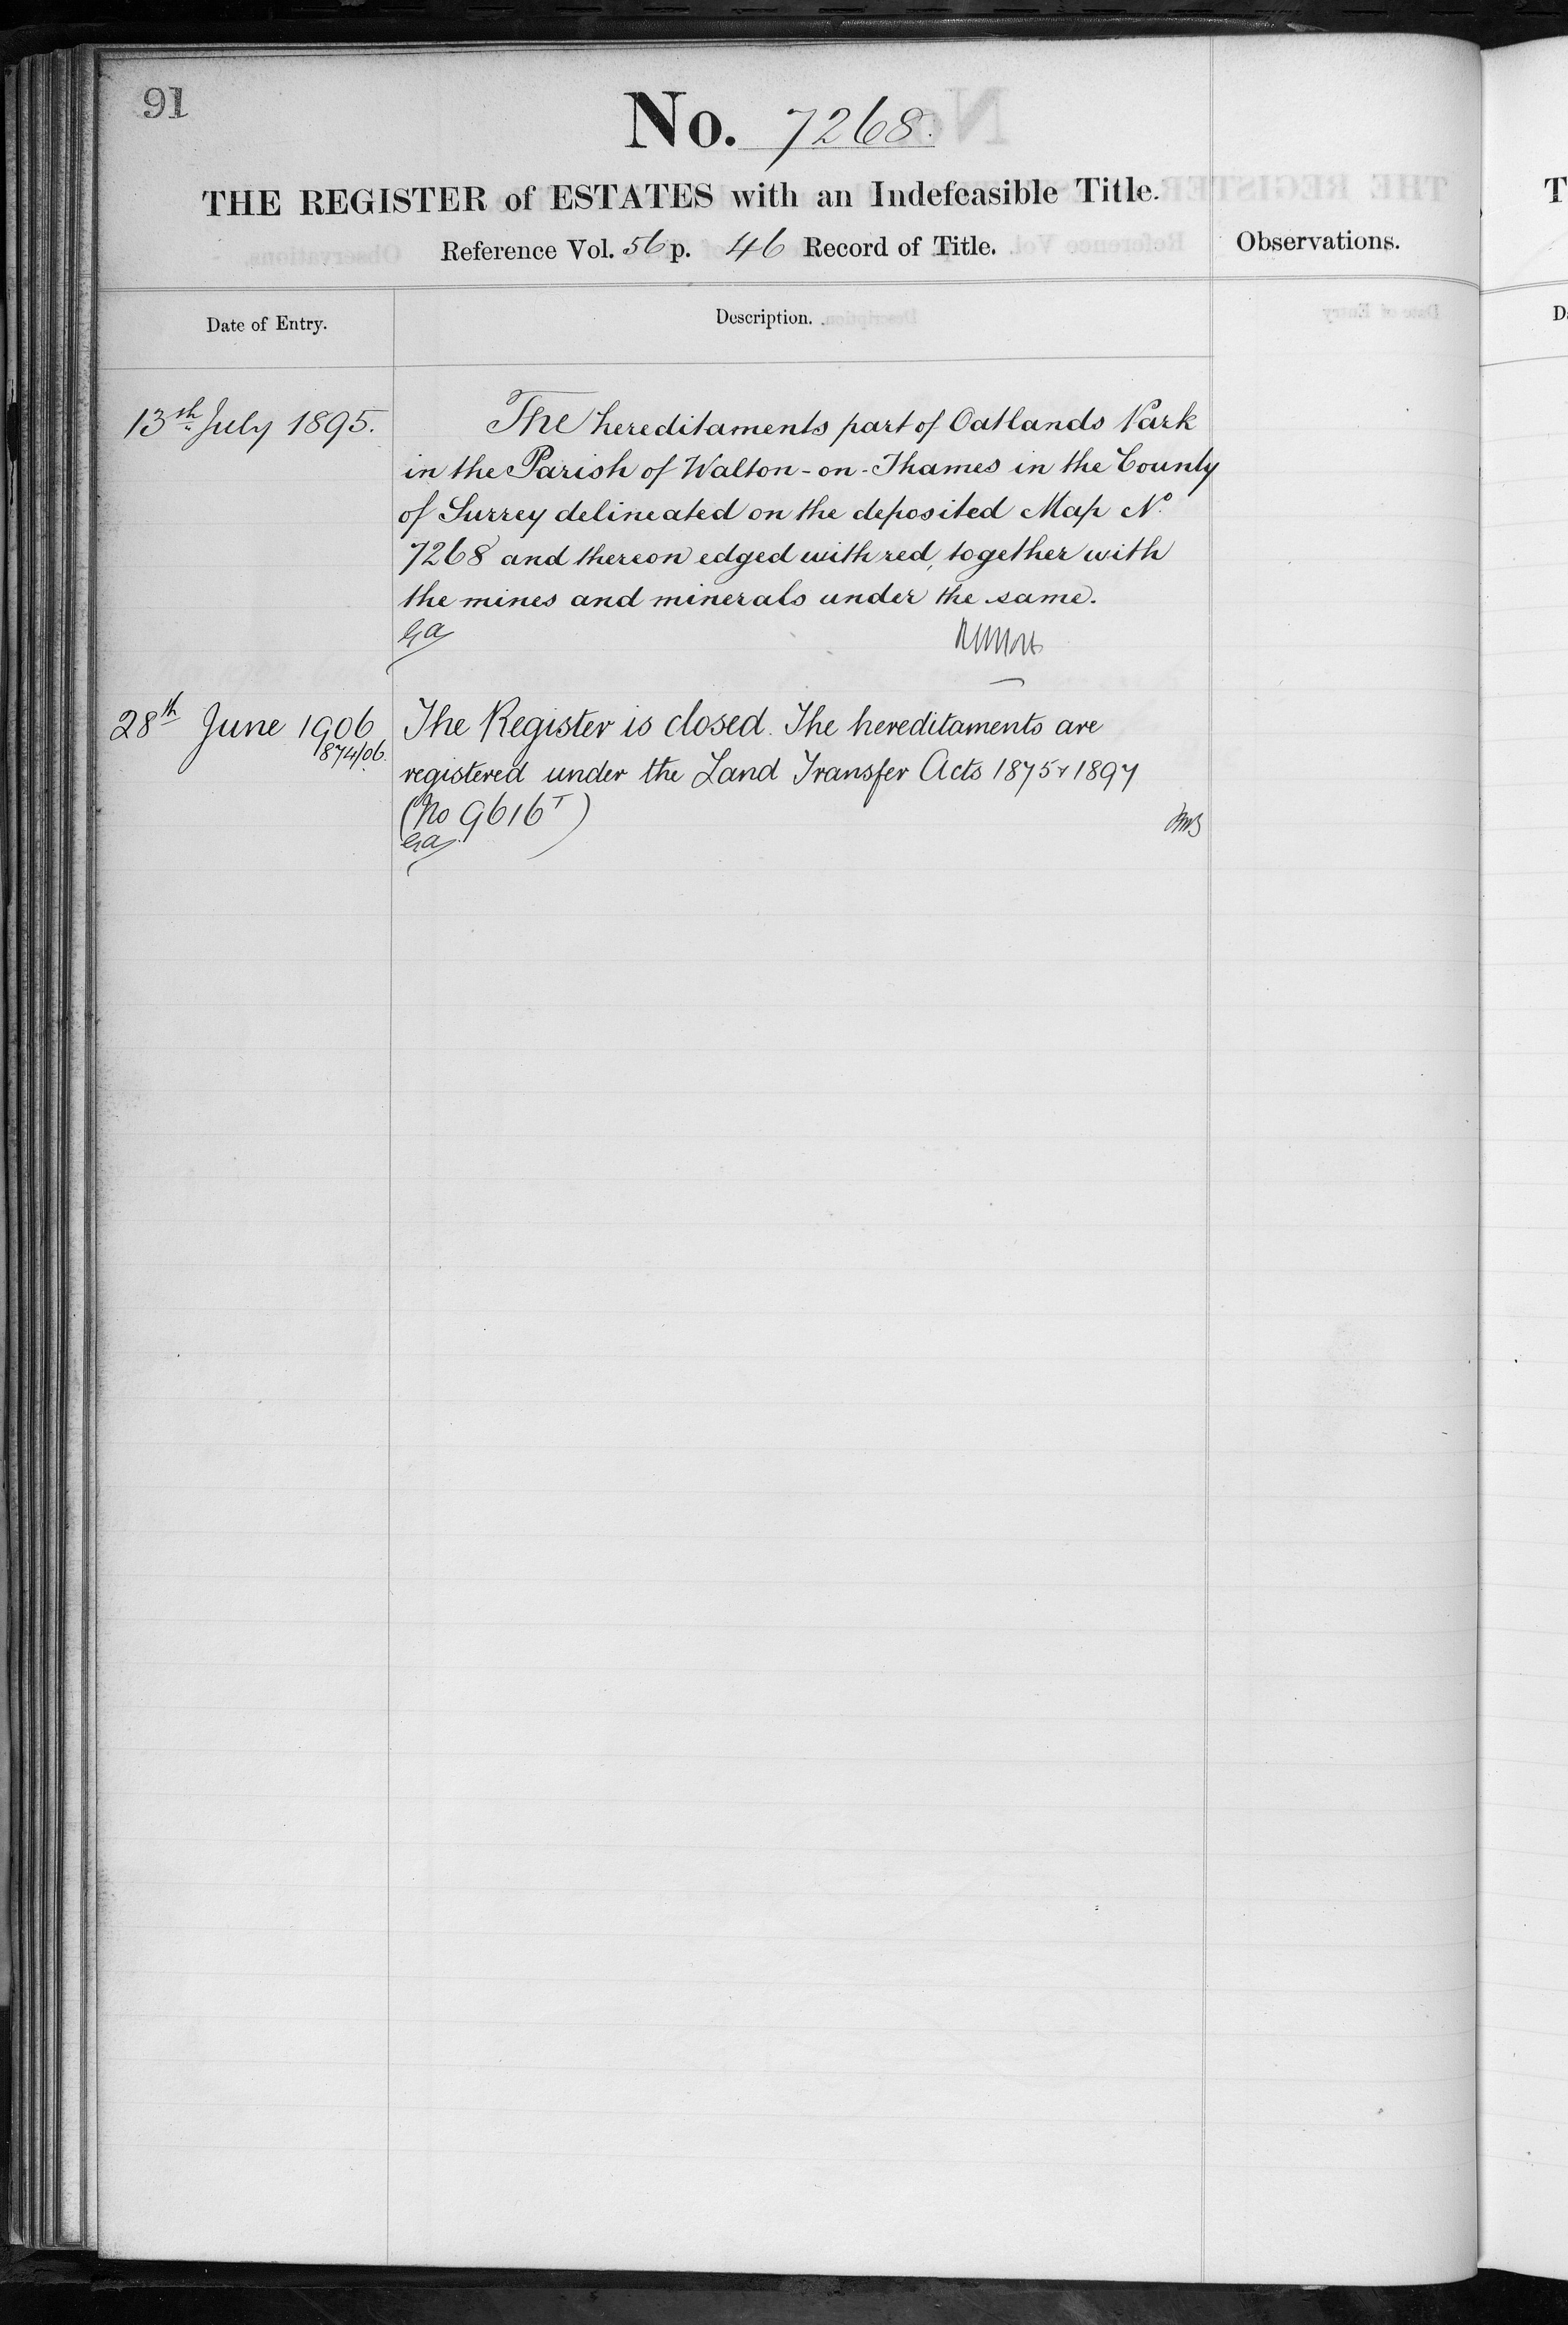 91
No. 7268.
THE REGISTER of ESTATES with an Indefeasible Title.
Reference Vol. 56 p. 46 Record of Title.
Observations.
Date of Entry.
Description.
13th July 1895.
The hereditaments part of Oatlands Park
in the Parish of Walton-on-Thames in the County
of Surrey delineated on the deposited Map No.
7268 and thereon edged with red, together with
the mines and minerals under the same.
Ga
28th June 1906
1874/06.
The Register is closed. The hereditaments are
registered under the Land Transfer Acts 1875 & 1897
(No 9616T)
Ga